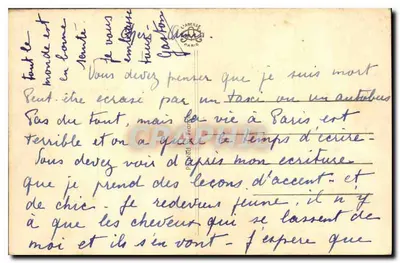 Amis.
Vous devez penser que je suis mort
Peut-être ecrasé par un taxi ou un autobus
Pas du tout, mais la vie à Paris est
terrible et on a guère le temps d'écrire-
Vous devez voir d'après mon ecriture
que je prend des leçons d'accent et
de chic- Je redeviens jeune, il n'y
à que les cheveux qui se lassent de
moi et ils s'en vont- J'espere que
tout le
monde est
en bonne
santé
je vous
embrasse
tous
Gaston
PARIS